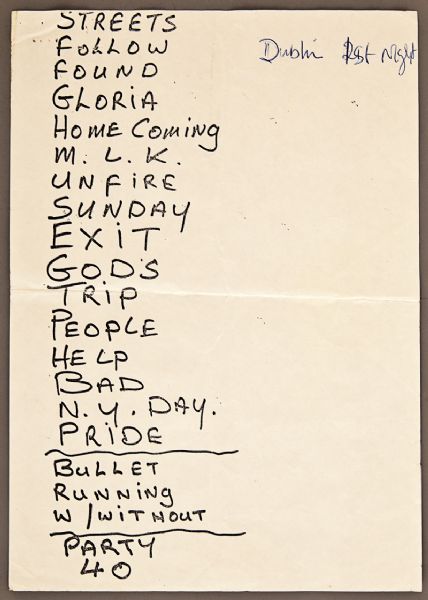 STREETS
FOLLOW
Dublin 1st night
FOUND
GLORIA
HOME COMING
M. L. K.
UNFIRE
SUNDAY
EXIT
GODS
TRIP
PEOPLE
HELP
BAD
N.Y. DAY.
PRIDE
BULLET
RUNNING
W/WITHOUT
PARTY
40